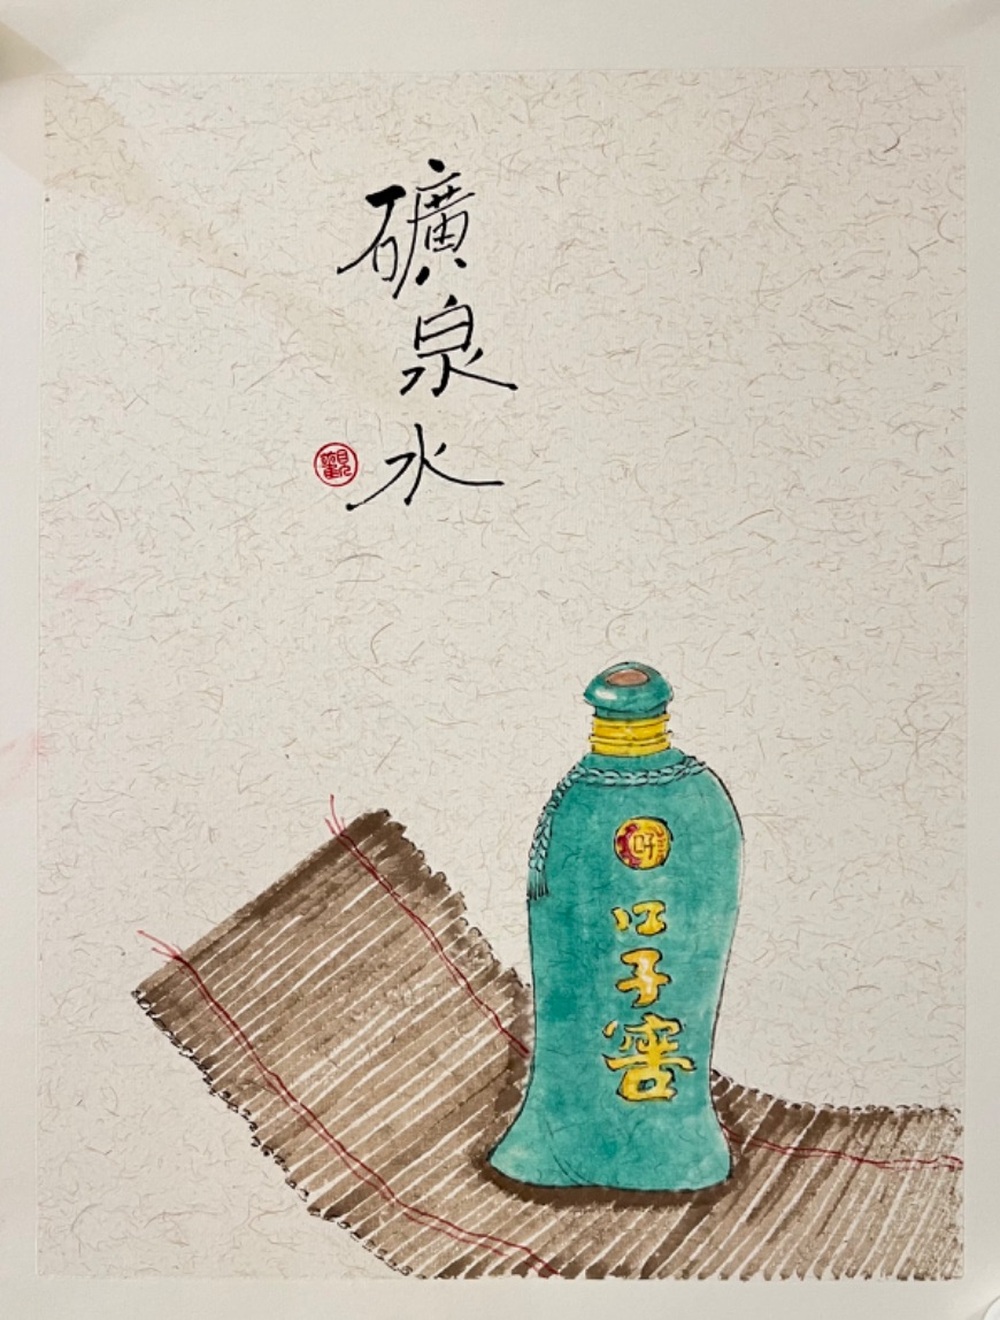 礦泉水
觀
口子窖